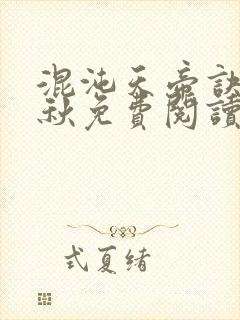 混沌天帝訣
秋免費閱讀
式夏緒